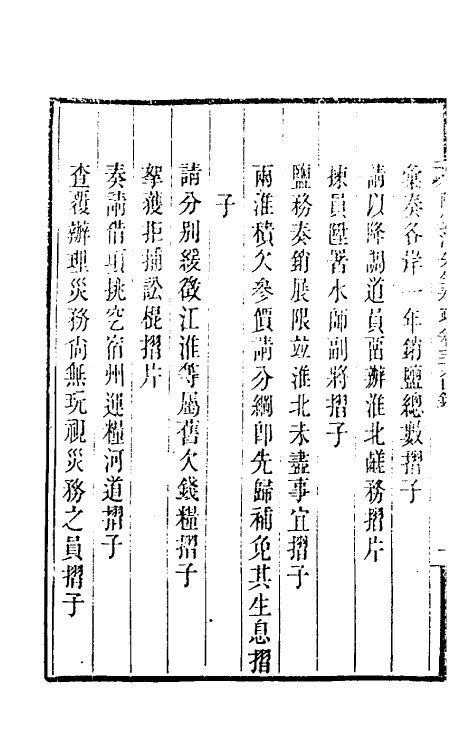 彙奏各岸一年銷鹽總數摺子
請以降調道員留辦淮北鹺務摺片
揀員陞署水師副將摺子
鹽務奏銷展限竝淮北未盡事宜摺子
兩淮積欠參價請分綱卽先歸補免其生息摺
子
請分別緩徵江淮等屬舊欠錢糧摺子
拏獲拒捕訟棍摺片
奏請借項挑空宿州運糧河道摺子
查覆辦理災務尙無玩視災務之員摺子